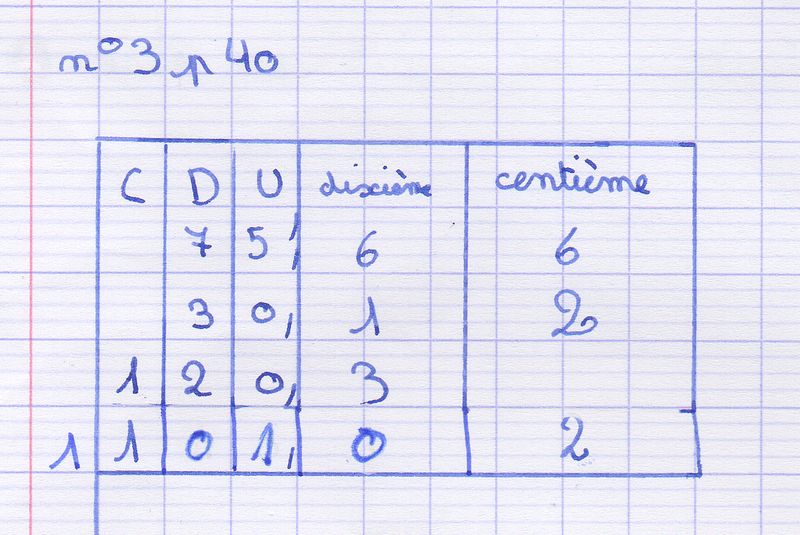 n°3 p 40
C D U dixième centième
7 5, 6 6
3 0, 1 2
1 2 0, 3
1 1 0 1, 0 2